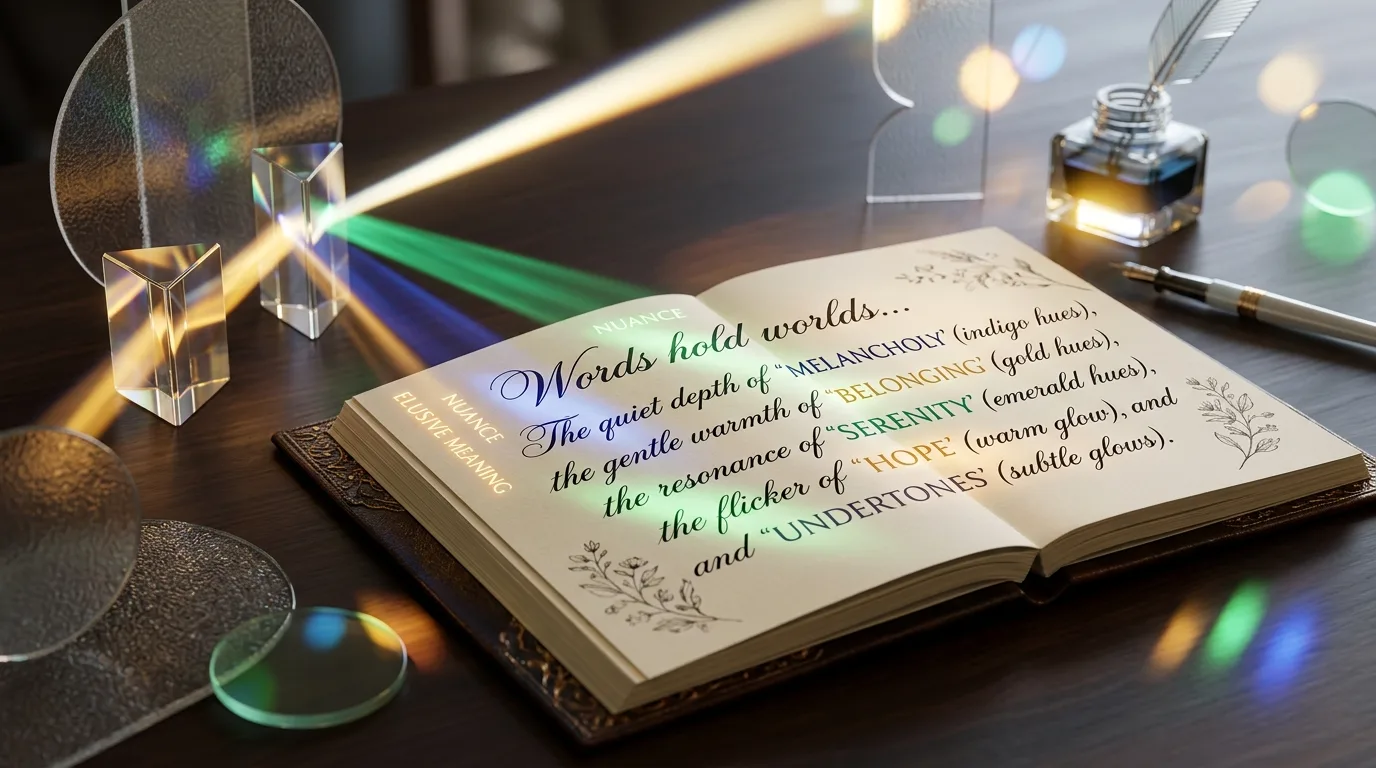 NUANCE
Words hold worlds...
The quiet depth of “MELANCHOLY’ (indigo hues),
the gentle warmth of “BELONGING’ (gold hues),
the resonance of “SERENITY’ (emerald hues),
the flicker of “HOPE’ (warm glow), and
and “UNDERTONES’ (subtle glows).
NUANCE
ELUSIVE MEANING